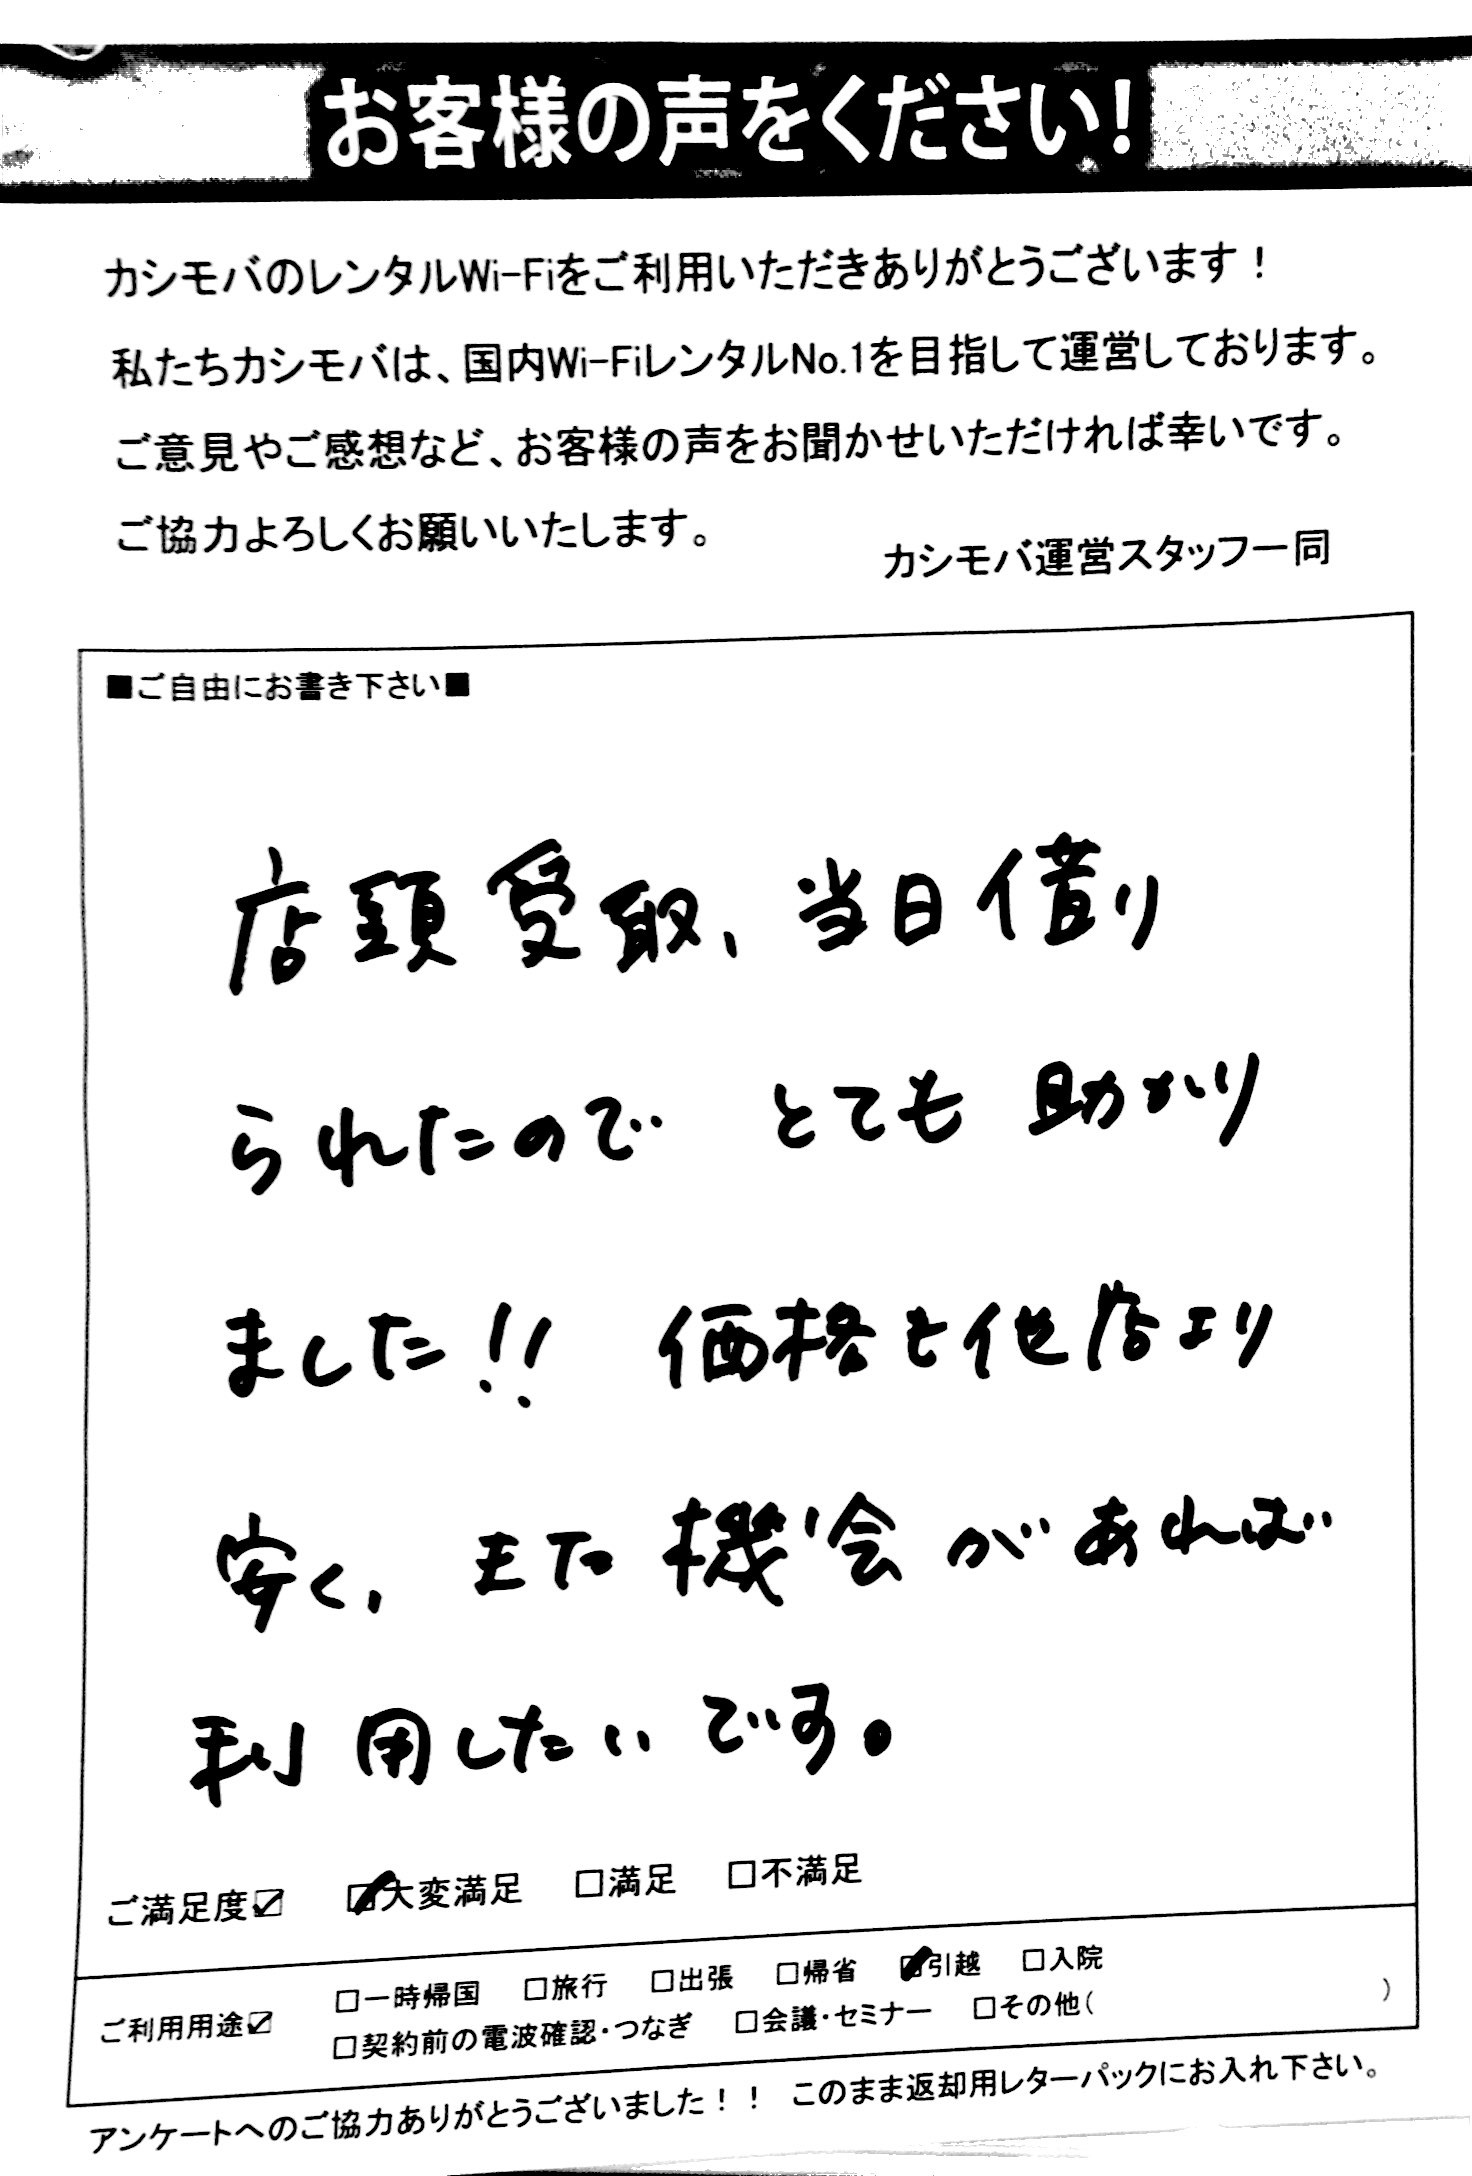 お客様の声をください!
カシモバのレンタルWi-Fiをご利用いただきありがとうございます！
私たちカシモバは、国内Wi-FiレンタルNo.1を目指して運営しております。
ご意見やご感想など、お客様の声をお聞かせいただければ幸いです。
ご協力よろしくお願いいたします。
カシモバ運営スタッフ一同
■ご自由にお書き下さい■
店頭受取、当日借り
られたので とても 助かり
ました!! 価格も他店より
安く、また機会があれば
利用したいです。
ご満足度☑ ☑大変満足 □満足 □不満足
ご利用用途☑ □一時帰国 □旅行 □出張 □帰省 ☑引越 □入院
□契約前の電波確認・つなぎ □会議・セミナー □その他( )
アンケートへのご協力ありがとうございました！！ このまま返却用レターパックにお入れ下さい。